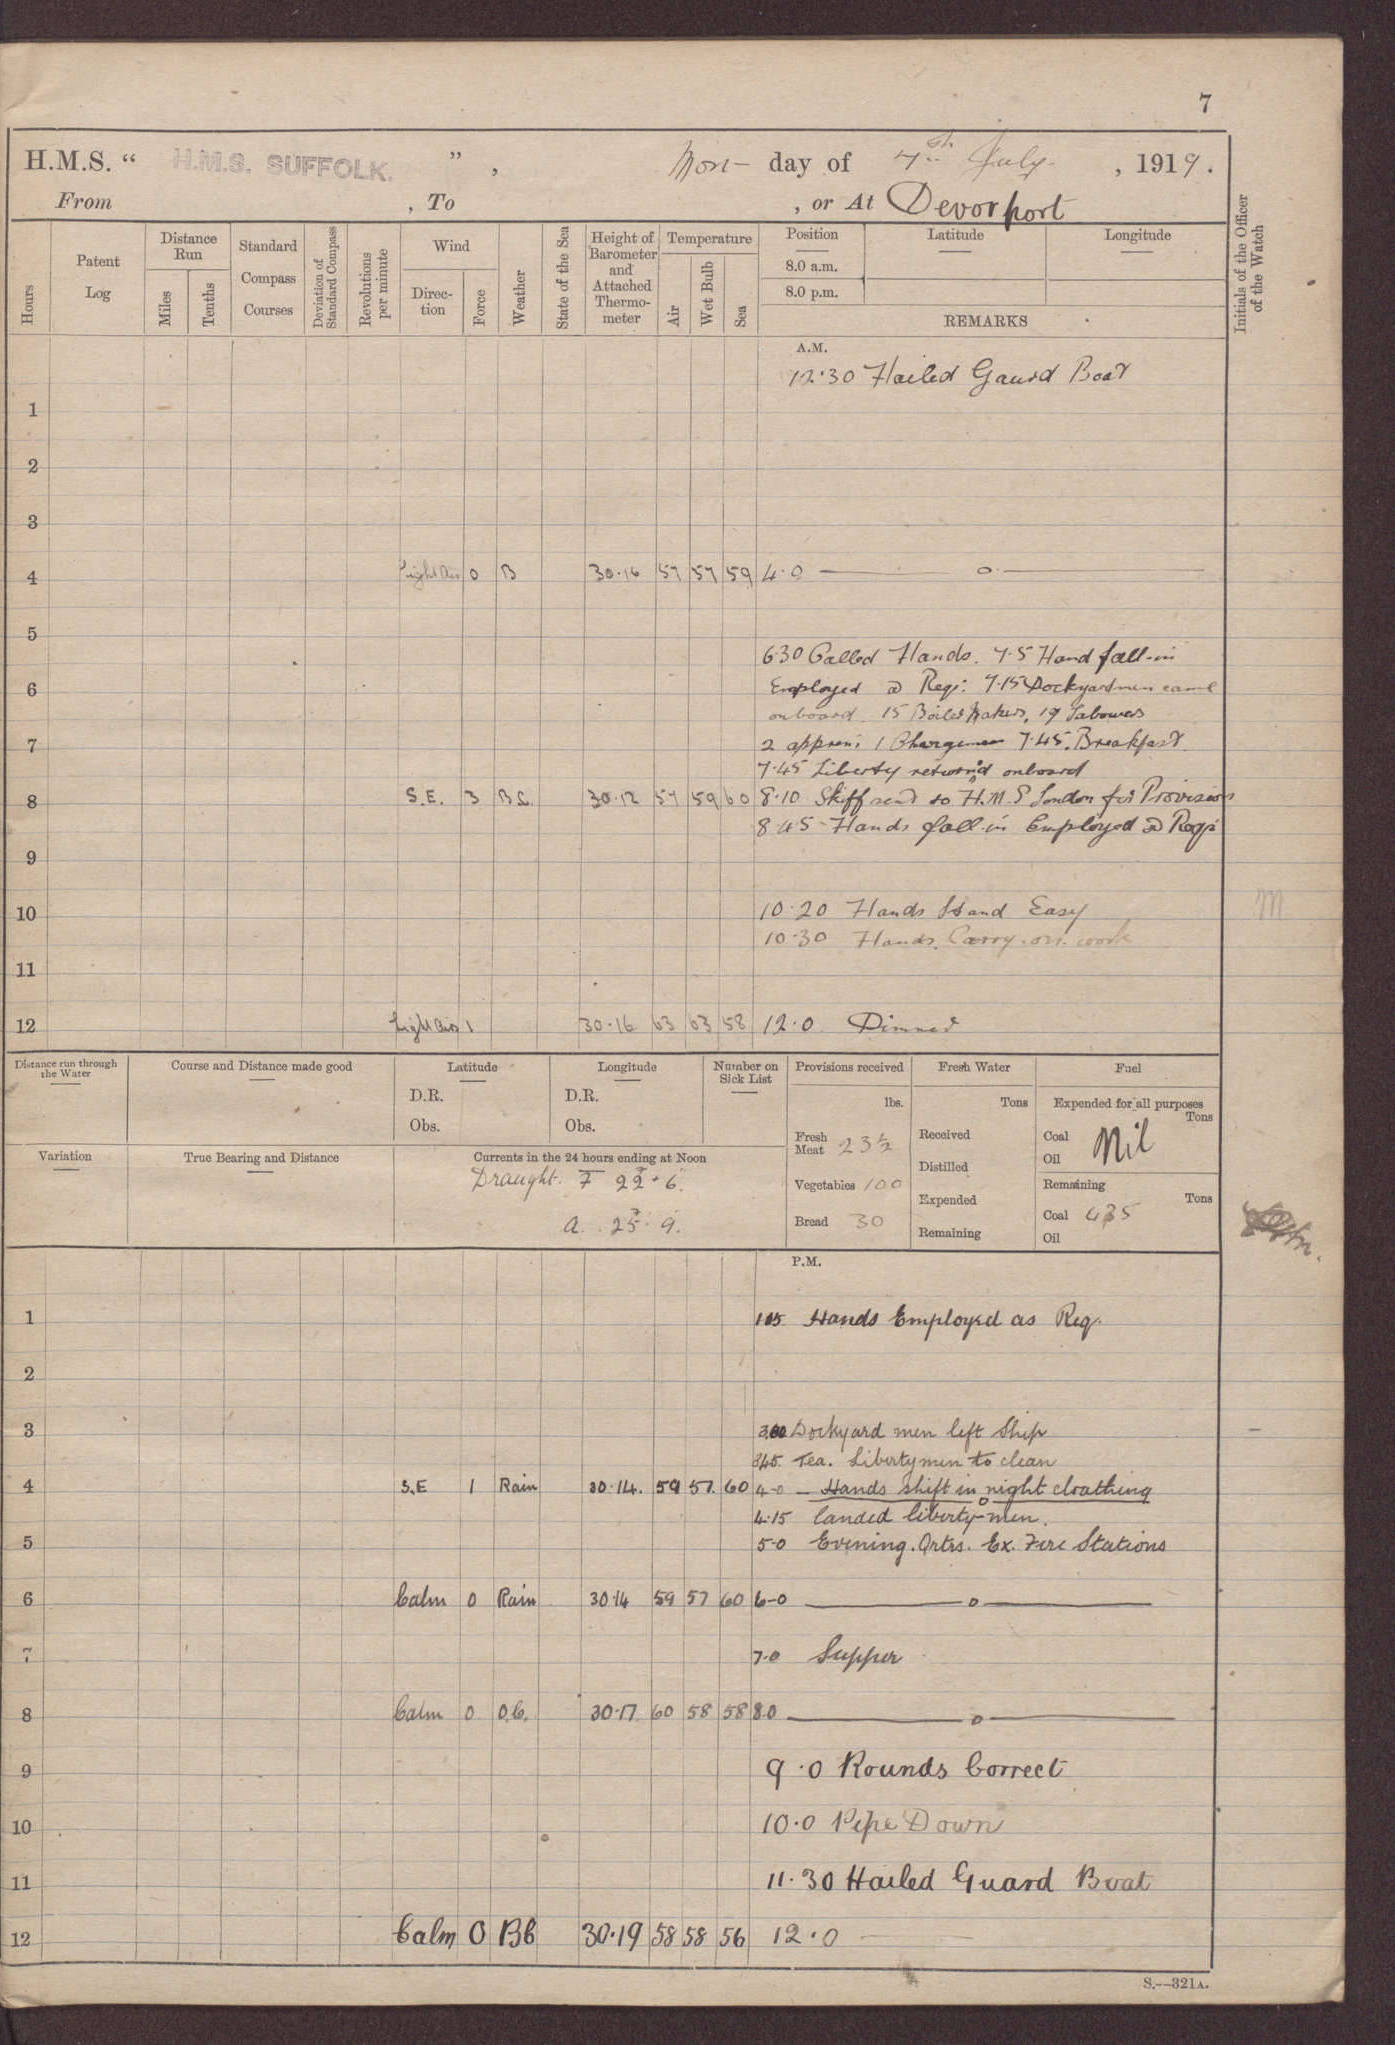 7
H.M.S. “ H.M.S. SUFFOLK. ” , Mon- day of 7th July , 1919.
From , To , or At Devonport
Hours
Patent Log
Distance Run
Miles
Tenths
Standard Compass Courses
Deviation of Standard Compass
Revolutions per minute
Wind
Direc-tion
Force
Weather
State of the Sea
Height of Barometer and Attached Thermo-meter
Temperature
Air
Wet Bulb
Sea
Position
8.0 a.m.
8.0 p.m.
Latitude
Longitude
REMARKS
Initials of the Officer of the Watch
A.M.
12.30 Hailed Gaurd Boat
1
2
3
4 Light Airs 0 B 30.16 57 57 59 4.0 — o —
5
6.30 Called Hands. 7.5 Hand fall-in
6 Employed @ Req: 7.15 Dockyardmen came
onboard 15 Boilermakers, 19 Labowers
7 2 appren: 1 Chargeman 7.45. Breakfast
7.45 Liberty return'd onboard
8 S.E. 3 B.C. 30.12 57 59 60 8.10 Skiff send to H.M.S London for Provisions
8.45 - Hands fall-in Employed @ Req:
9
10 10.20 Hands Stand Easy
10.30 Hands. Carry-on. work
M
11
12 Light Airs 1 30.16 63 63 58 12.0 Dinner
Distance run through the Water
Course and Distance made good
Latitude
D.R.
Obs.
Longitude
D.R.
Obs.
Number on Sick List
Provisions received
lbs.
Fresh Meat 23½
Vegetables 100
Bread 30
Fresh Water
Tons
Received
Distilled
Expended
Remaining
Fuel
Expended for all purposes
Tons
Coal
Oil
Nil
Remaining
Tons
Coal 435
Oil
Variation
True Bearing and Distance
Currents in the 24 hours ending at Noon
Draught. F 22' 6"
a. 25' 9"
P.M.
1 1.15 Hands Employed as Req.
2
3 Dockyard men left Ship
3.45. Tea. Libertymen to clean
4 S.E 1 Rain 30.14. 59 57. 60 4-0 — Hands shift in night cloathing
4.15 landed liberty-men.
5 5-0 Evening. Qrtrs. Ex. Fire Stations
6 Calm 0 Rain 30.14 59 57 60 6-0 — o —
7 7.0 Supper
8 Calm 0 O.C. 30.17 60 58 58 8.0 — o —
9 9.0 Rounds Correct
10 10.0 Pipe Down
11 11.30 Hailed Guard Boat
12 Calm 0 BC 30.19 58 58 56 12.0 —
S.—321A.